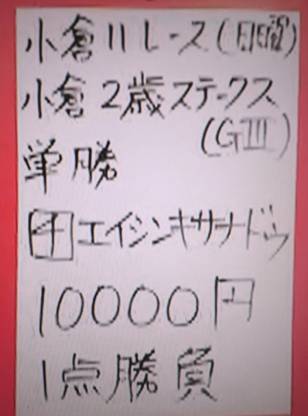 小倉11レース(日曜)
小倉2歳ステークス
(GⅢ)
単勝
エイシンキサナドゥ
10000円
1点勝負